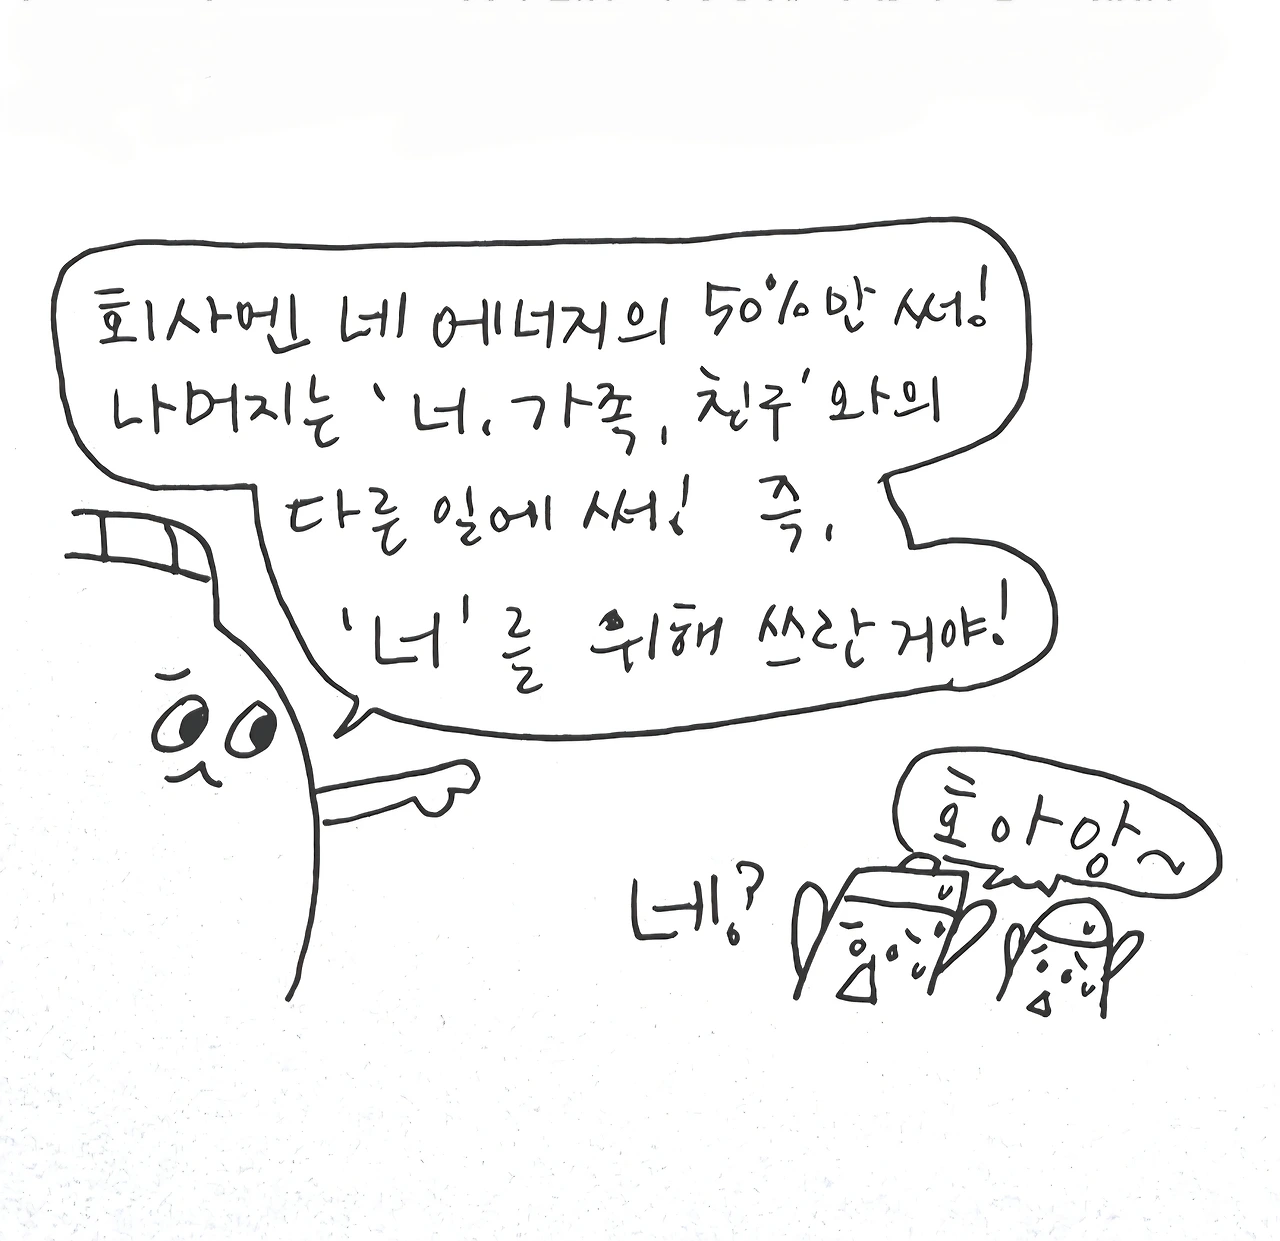 회사엔 네 에너지의 50%만 써!
나머지는 '너, 가족, 친구'와의
다른 일에 써! 즉,
'너'를 위해 쓰란 거야!
호아앙~
네?